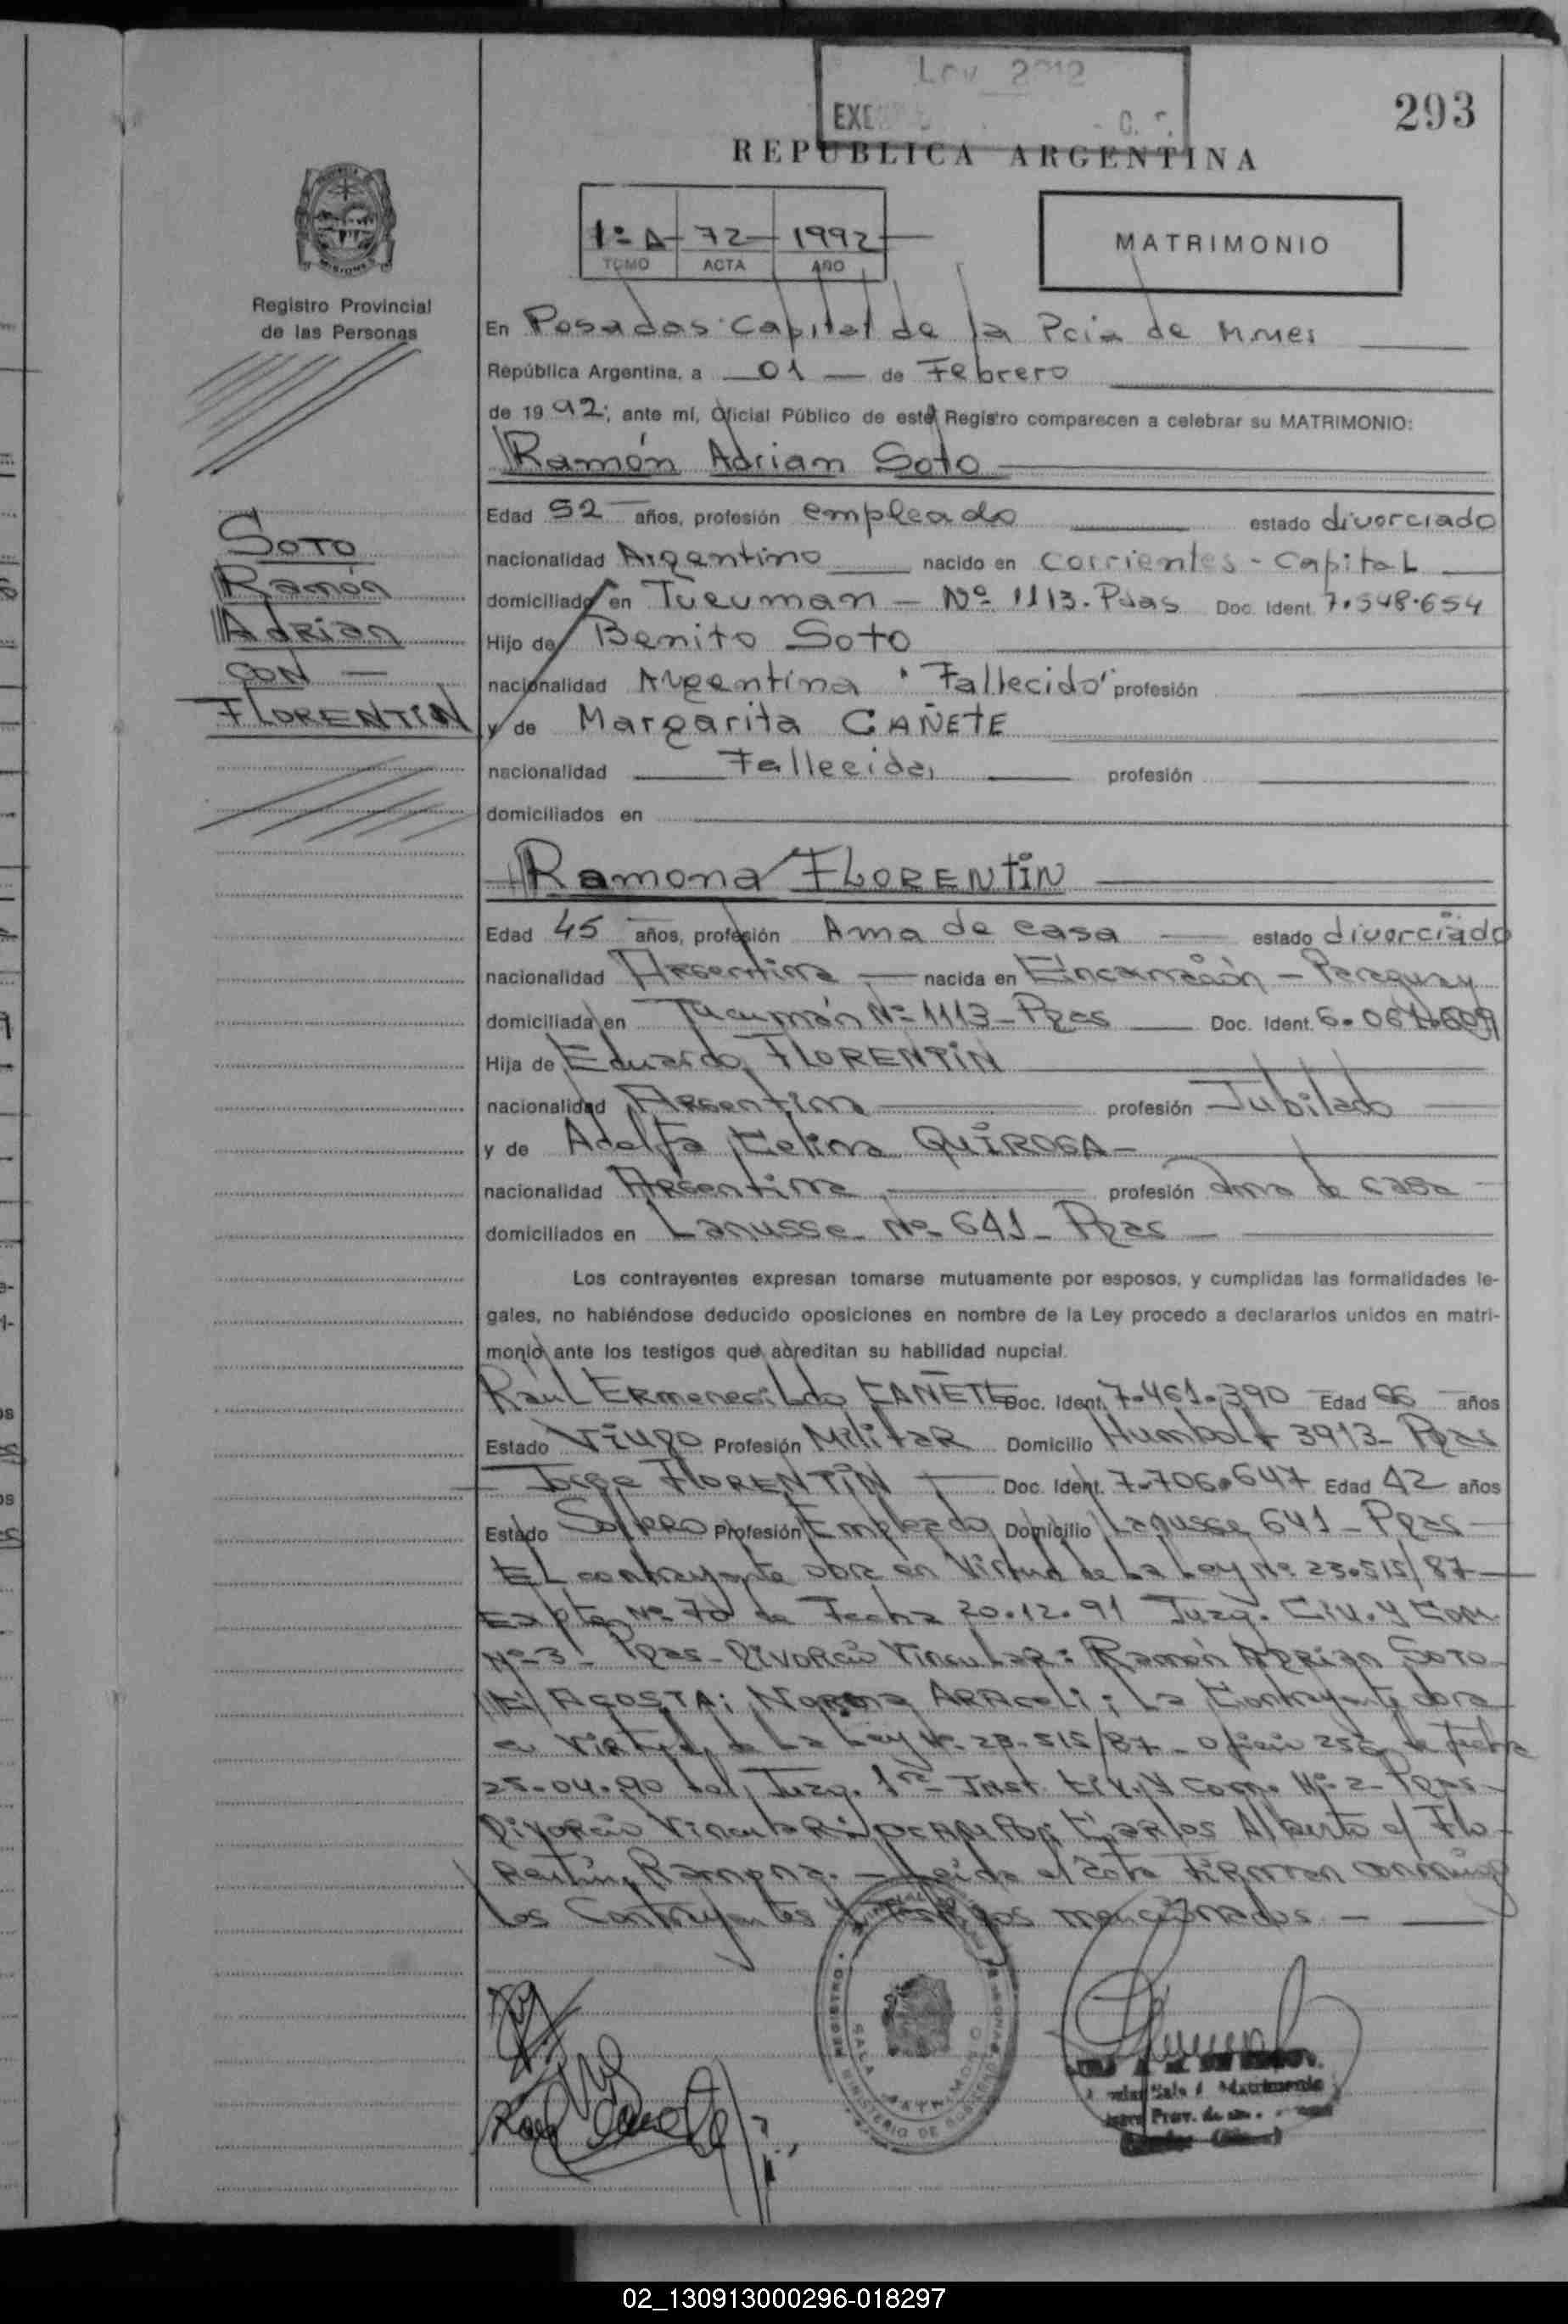 Ley 2012
EXE
293
REPUBLICA ARGENTINA
1º A 72 1992
TOMO ACTA AÑO
MATRIMONIO
MISIONES
Registro Provincial
de las Personas
En Posadas Capital de la Pcia de M.nes
República Argentina, a 01 de Febrero
de 1992; ante mí, Oficial Público de este Registro comparecen a celebrar su MATRIMONIO:
Ramón Adrian Soto
Edad 52 años, profesión empleado estado divorciado
nacionalidad Argentino nacido en Corrientes - Capital
domiciliado en Tucuman - Nº 1113. Pdas Doc. Ident. 7.548.654
Hijo de Benito Soto
nacionalidad Argentina "Fallecido" profesión
y de Margarita CAÑETE
nacionalidad Fallecida, profesión
domiciliados en
SOTO
Ramón
Adrian
CON —
FLORENTIN
Ramona FLORENTIN
Edad 45 años, profesión Ama de casa estado divorciado
nacionalidad Argentina nacida en Encarnación - Paraguay
domiciliada en Tucumán Nº 1113 - Pdas Doc. Ident. 6.
Hija de Eduardo FLORENTIN
nacionalidad Argentina profesión Jubilado
y de Adelfa Celina QUIROGA -
nacionalidad Argentina profesión ama de casa
domiciliados en Lanusse Nº 641 - Pdas
Los contrayentes expresan tomarse mutuamente por esposos, y cumplidas las formalidades le-
gales, no habiéndose deducido oposiciones en nombre de la Ley procedo a declararlos unidos en matri-
monio ante los testigos que acreditan su habilidad nupcial.
Raúl Ermenegildo CAÑETE Doc. Ident. 7.461.390 Edad 66 años
Estado Viudo Profesión Militar Domicilio Humbolt 3913 - Pdas
Jorge FLORENTIN Doc. Ident. 7.706.647 Edad 42 años
Estado Soltero Profesión Empleado Domicilio Lanusse 641 - Pdas
El contrayente obra en Virtud de La Ley Nº 23.515/87
Expte Nº 70 de Fecha 20.12.91 Juzg. Civ. y Com.
Nº 3 - Pdas - Divorcio Vincular: Ramón Adrian Soto
C/ ACOSTA; Norma ARACELI; La Contrayente obra
en Virtud de La Ley Nº 23.515/87 - Oficio 256 de fecha
25.04.90 del Juzg. 1ra Inst. Civ. y Com. Nº 2 - Pdas
Divorcio Vincular: Carlos Alberto c/ Flo-
rentin, Ramona. - Leida el acta Firman conmigo
los Contrayentes y testigos mencionados. -
REGISTRO
SALA MATRIMONIO
MINISTERIO DE GOBIERNO
02_130913000296-018297